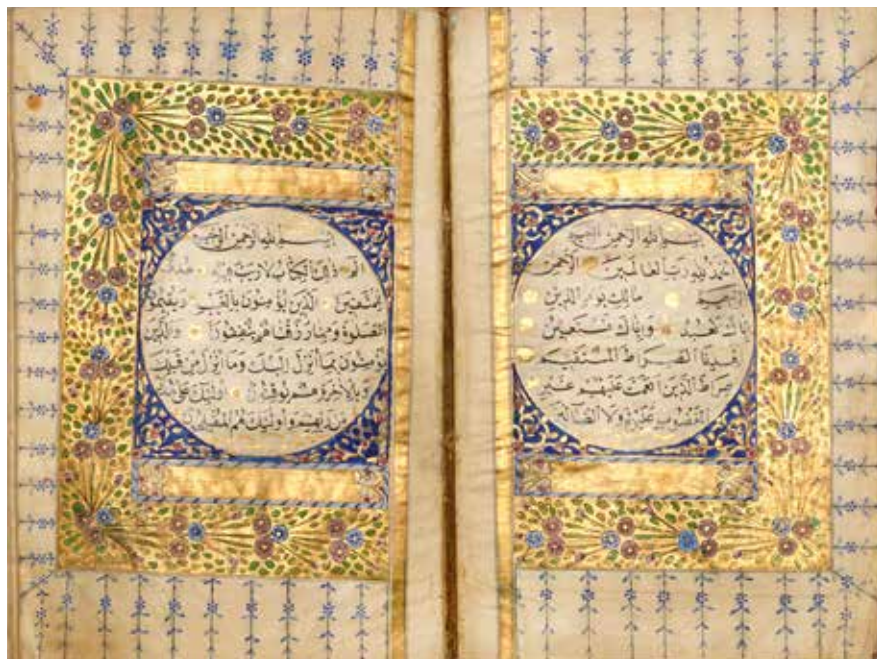 بسم الله الرحمن الرحيم
الحمد لله رب العالمين الرحمن
الرحيم مالك يوم الدين
اياك نعبد واياك نستعين
اهدنا الصراط المستقيم
صراط الذين انعمت عليهم غير
المغضوب عليهم ولا الضالين
بسم الله الرحمن الرحيم
الم ذلك الكتاب لا ريب فيه هدى
للمتقين الذين يؤمنون بالغيب ويقيمون
الصلوة ومما رزقناهم ينفقون والذين
يؤمنون بما انزل اليك وما انزل من قبلك
وبالاخرة هم يوقنون اولئك على هدى
من ربهم واولئك هم المفلحون